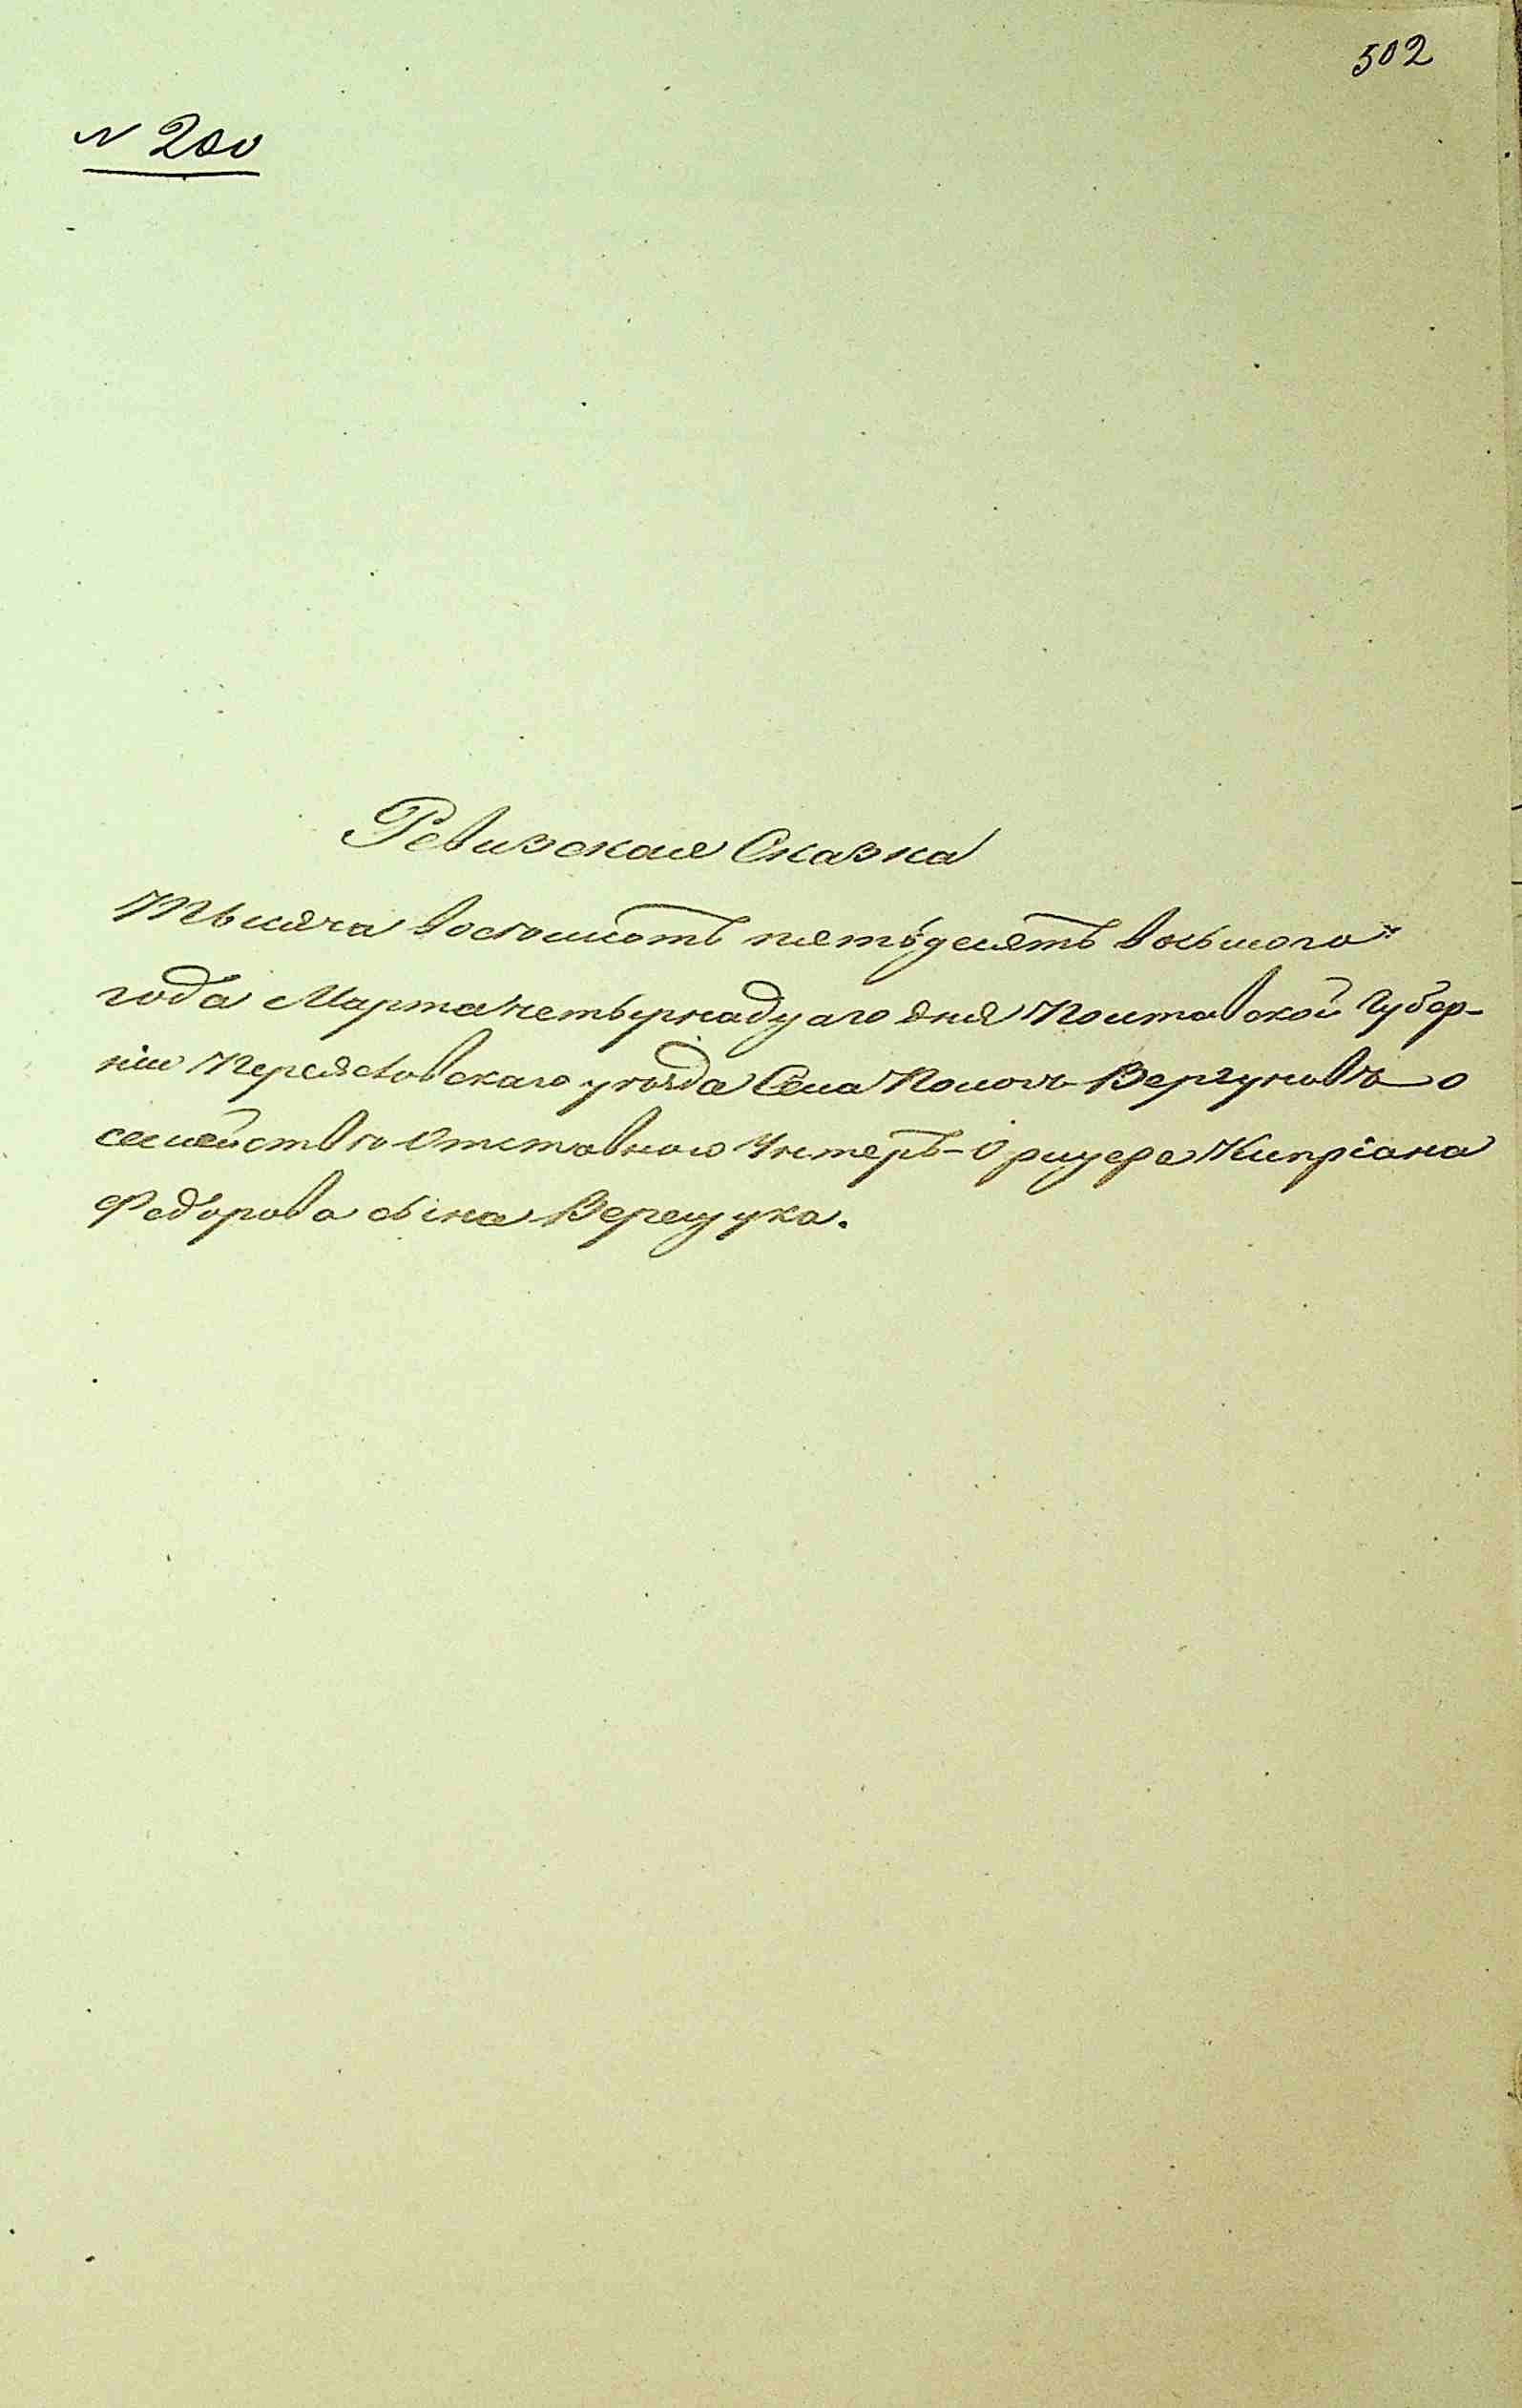 502
N 200
Ревизская Сказка
Тысяча восемьсотъ пятьдесятъ восьмого
года Марта четырнадцаго дня Полтавской Губер-
ніи Переяславскаго уѣзда Села Помоч. Вергуновъ о
семействѣ Отставного Унтеръ-Офицера Кипріана
Федорова сына